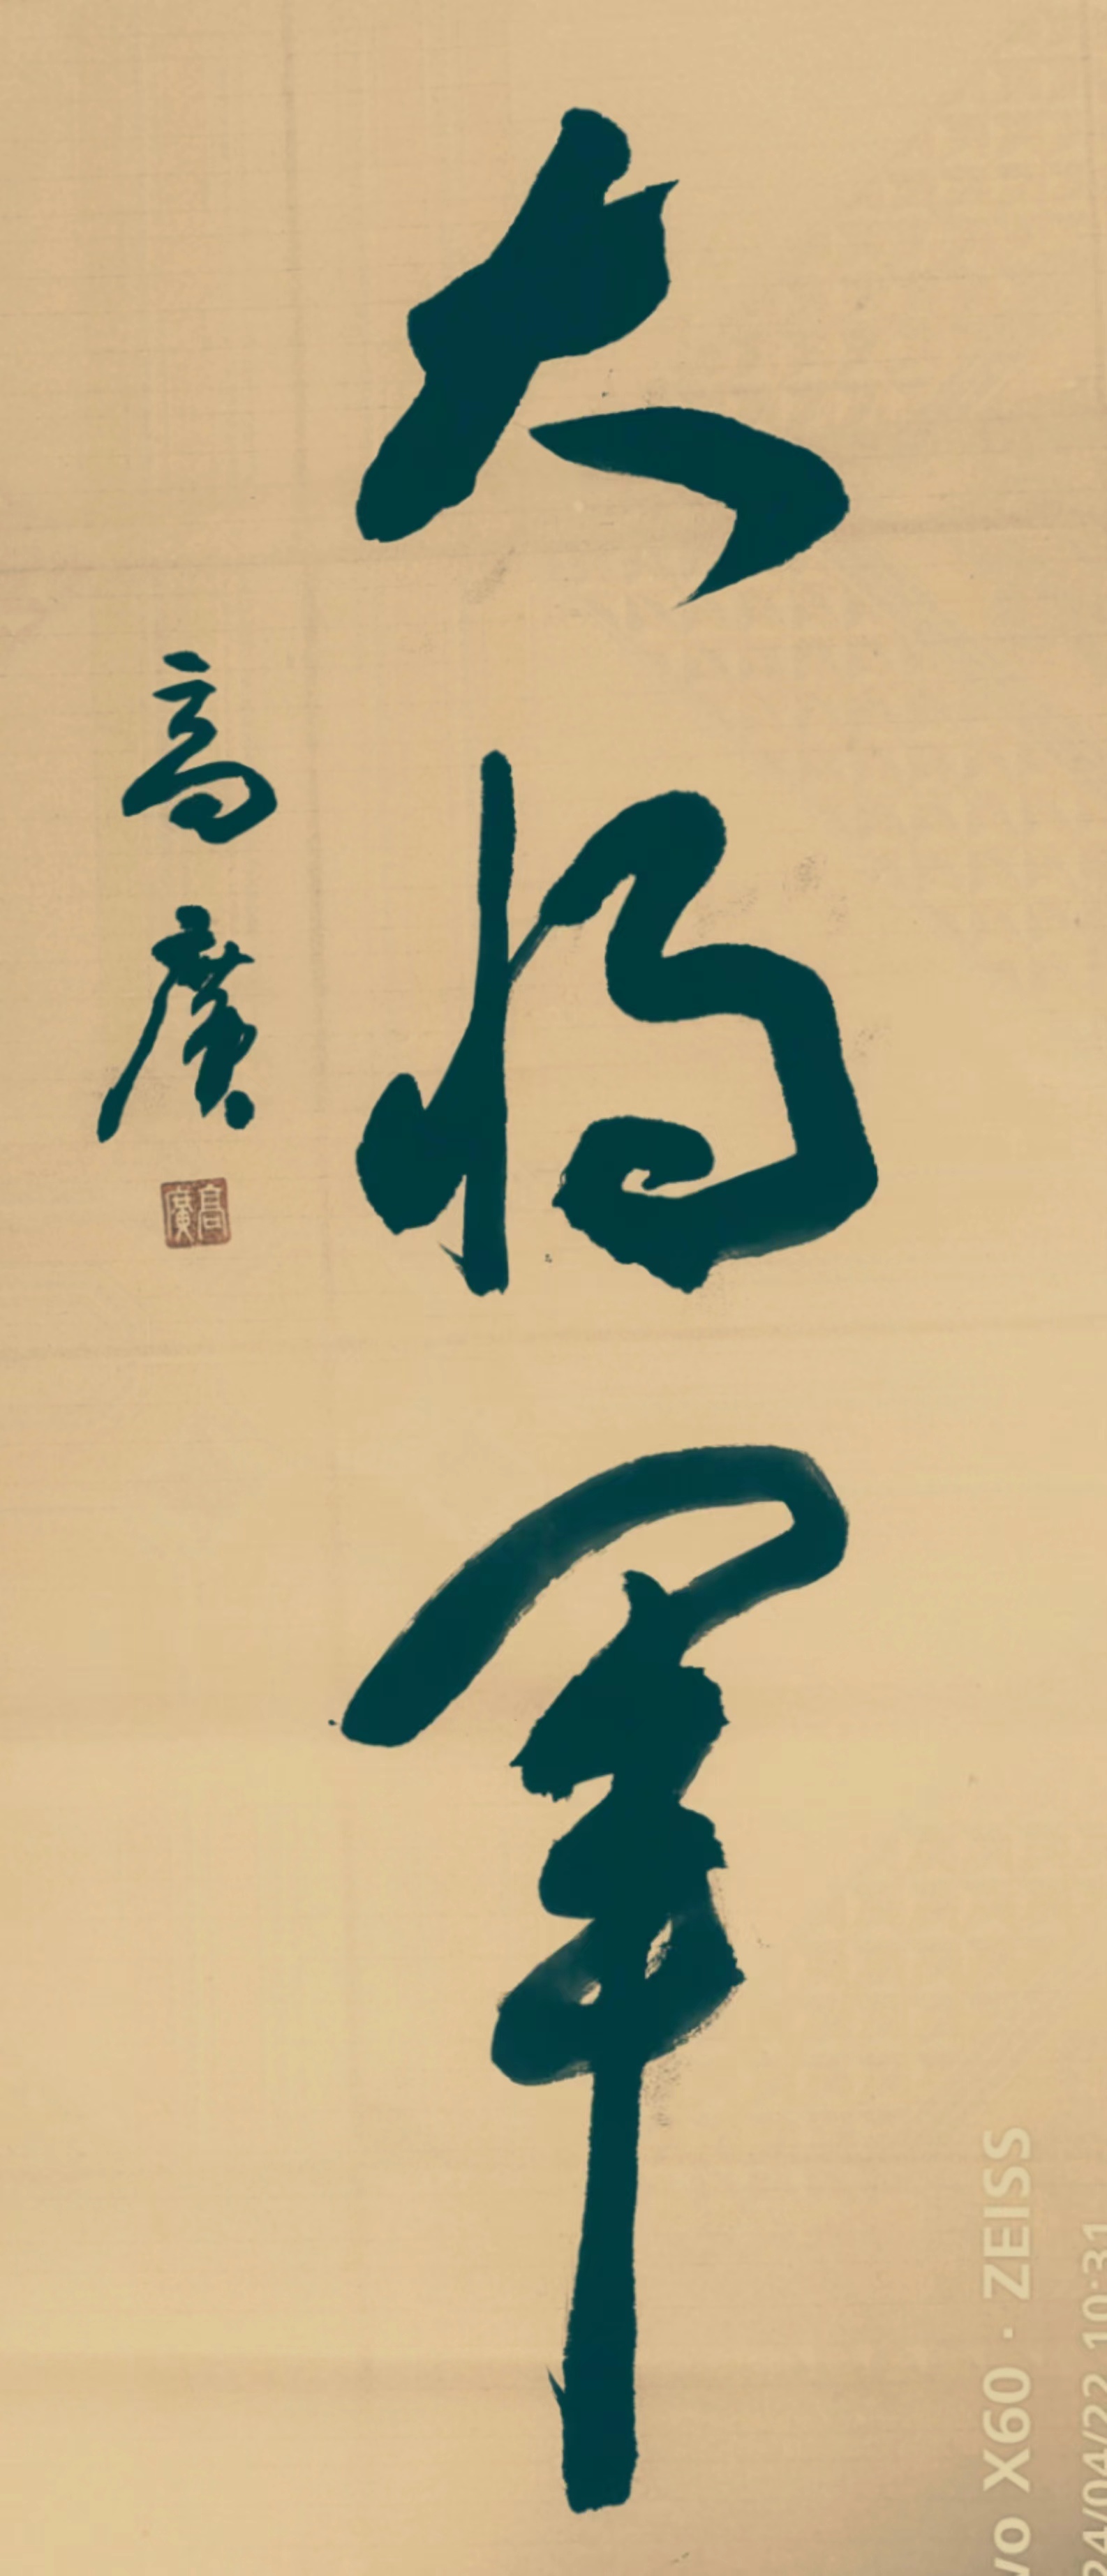 大将军
高廣
高廣
vo X60 · ZEISS
24/04/22 10:31